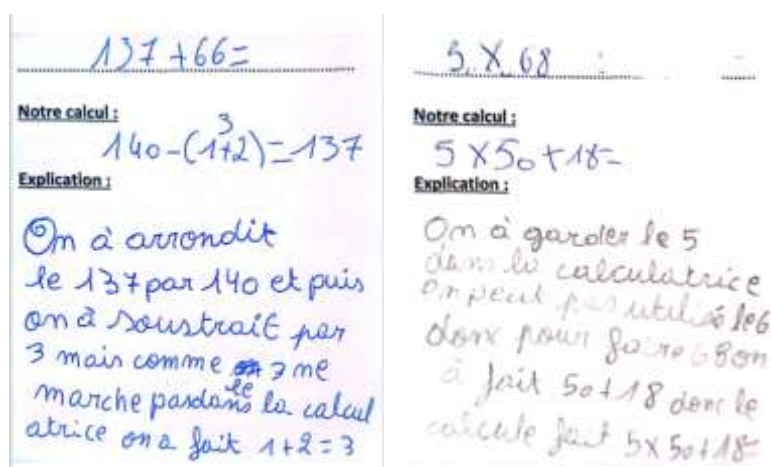 137+66=
Notre calcul :
3
140-(1+2)=137
Explication :
On à arrondit
le 137 par 140 et puis
on à soustrait par
3 mais comme 3 me
marche pas dans le la calcul
atrice on a fait 1+2=3
5 X 68 :
Notre calcul :
5 X 50+18=
Explication :
On à garder le 5
dans la calculatrice
on peut pas utilisé le 6
donx pour faire 68 on
à fait 50+18 donc le
calcule fait 5X50+18=